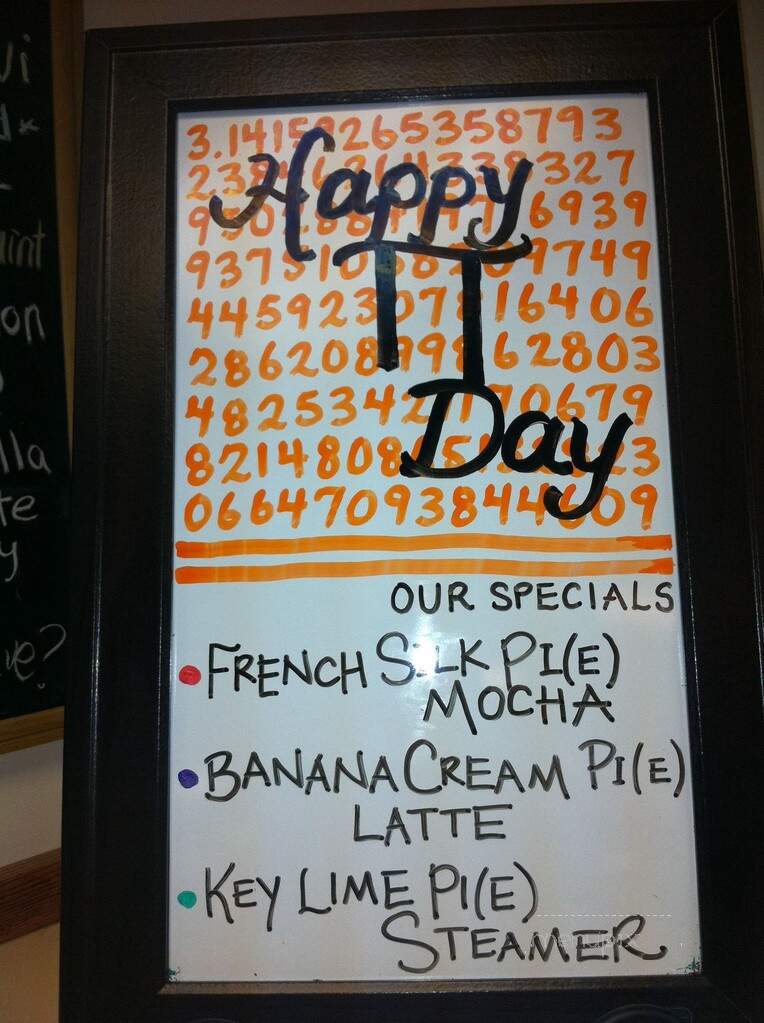 int
on
lla
te
y
ve?
3.14159265358793
327
6939
93751058209749
44592307816406
28620899862803
48253421170679
23
06647093844609
Happy
π
Day
OUR SPECIALS
• FRENCH SILK PI(E)
MOCHA
• BANANA CREAM PI(E)
LATTE
• KEY LIME PI(E)
STEAMER